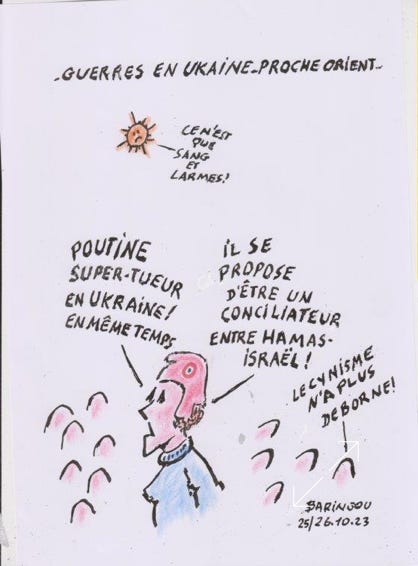 -GUERRES EN UKAINE-PROCHE ORIENT-
CE N'EST
QUE
SANG
ET
LARMES!
POUTINE
SUPER-TUEUR
EN UKRAINE!
EN MÊME TEMPS
IL SE
PROPOSE
D'ÊTRE UN
CONCILIATEUR
ENTRE HAMAS-
ISRAËL!
LE CYNISME
N'A PLUS
DE BORNE!
BARINGOU
25/26.10.23